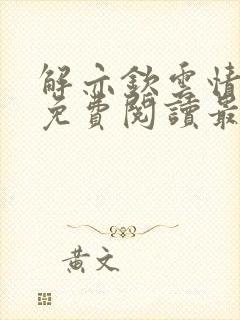 解亦欽雲情
免費閱讀最
黃文